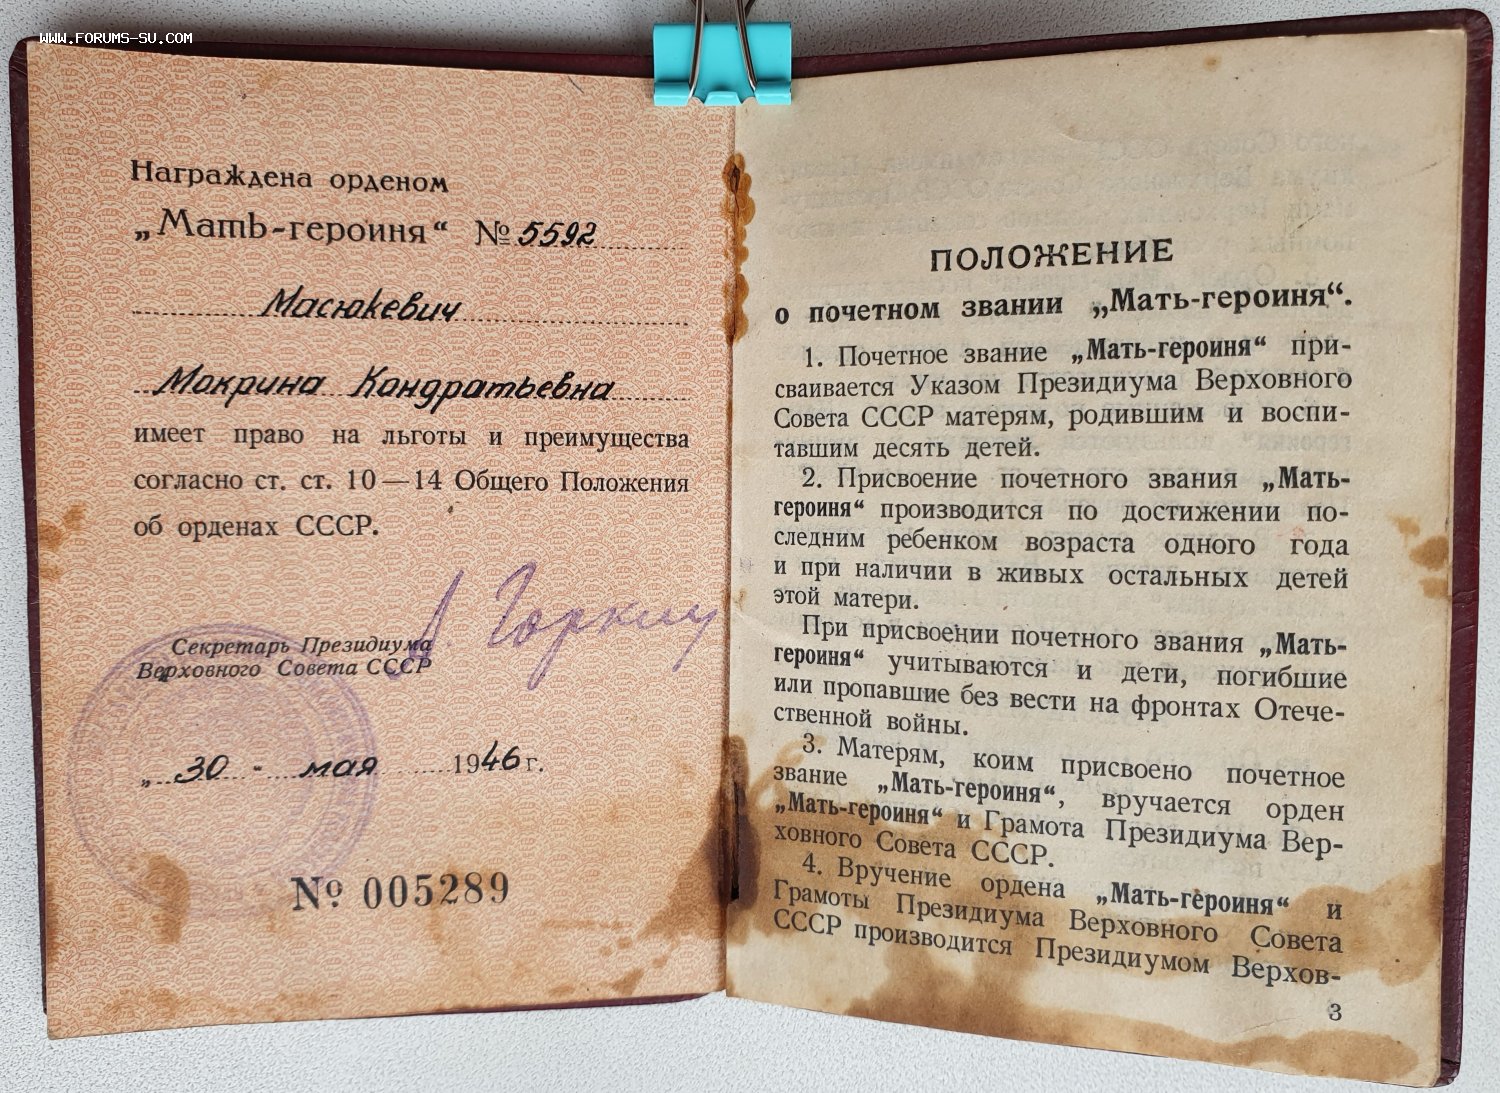 WWW.FORUMS-SU.COM
Награждена орденом
„Мать-героиня“ № 5592
Масюкевич
Макрина Кондратьевна
имеет право на льготы и преимущества
согласно ст. ст. 10—14 Общего Положения
об орденах СССР.
Секретарь Президиума
Верховного Совета СССР
А. Горкин
„ 30 - мая 1946 г.
№ 005289
ПОЛОЖЕНИЕ
о почетном звании „Мать-героиня“.
1. Почетное звание „Мать-героиня“ при-
сваивается Указом Президиума Верховного
Совета СССР матерям, родившим и воспи-
тавшим десять детей.
2. Присвоение почетного звания „Мать-
героиня“ производится по достижении по-
следним ребенком возраста одного года
и при наличии в живых остальных детей
этой матери.
При присвоении почетного звания „Мать-
героиня“ учитываются и дети, погибшие
или пропавшие без вести на фронтах Отече-
ственной войны.
3. Матерям, коим присвоено почетное
звание „Мать-героиня“, вручается орден
„Мать-героиня“ и Грамота Президиума Вер-
ховного Совета СССР.
4. Вручение ордена „Мать-героиня“ и
Грамоты Президиума Верховного Совета
СССР производится Президиумом Верхов-
3